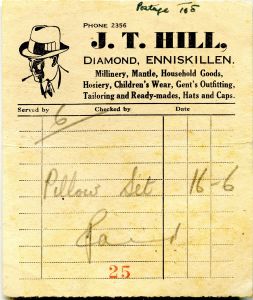 Postage 1s5
PHONE 2356
J. T. HILL,
DIAMOND, ENNISKILLEN.
Millinery, Mantle, Household Goods,
Hosiery, Children's Wear, Gent's Outfitting,
Tailoring and Ready-mades, Hats and Caps.
Served by Checked by Date
6
Pillow Set 16-6
Paid
25